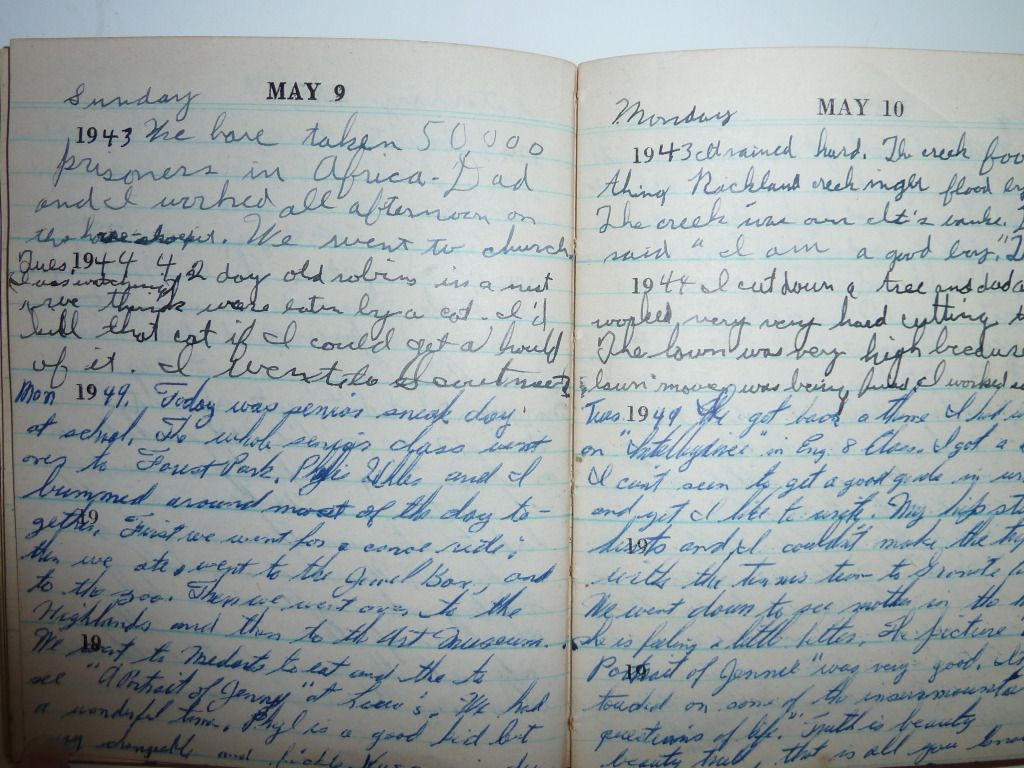 Sunday MAY 9
1943 We have taken 50,000
prisoners in Africa. Dad
and I worked all afternoon on
the . We went to church.
Tues. 1944 4 2 day old robins in a nest
I was watching
we think were eaten by a cat. I'd
kill that cat if I could get a hould
of it. I went to
Mon 1949. Today was senior sneak day
at school. The whole senior class went
over to Forest Park. and I
bummed around most of the day to-
19
gether. First we went for a canoe ride;
then we ate, went to the Jewel Box, and
to the zoo. Then we went over to the
Highlands and then to the Art Museum.
19
We went to Medarts to eat and the to
see "A Portrait of Jenny" at Loew's. We had
a wonderful time. Phyl is a good kid but
changeable and
Monday MAY 10
1943 It rained hard. The creek
thing Rockland creek might flood
The creek was over It's
said "I am a good boy."
1944 I cut down a tree and dad
worked very very hard cutting
The lawn was very high because
lawn mower was being fixed. I worked
Tues. 1949 We got back a theme I had
on "Intelligence" in Eng. 8 Class. I got a
I can't seem to get a good grade in
and yet I like to write. My hip
19
hurts and I couldn't make the trip
with the tennis team to Granite
We went down to see mother in the
she is feeling a little better. The picture
19
Portrait of Jennie" was very good. It
touched on some of the insurmountable
questions of life. "Truth is beauty
beauty truth, that is all you know